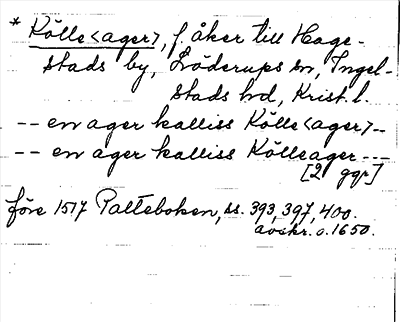 * Kölle<ager>, f. åker till Hage-
stads by, Löderups sn, Ingel-
stads hd, Krist. l.
-- en ager kalliss Kölle<ager>--
-- en ager kalliss Kölleager ---
[2 ggr]
före 1517 Palteboken, ss. 393, 397, 400.
avskr. o. 1650.